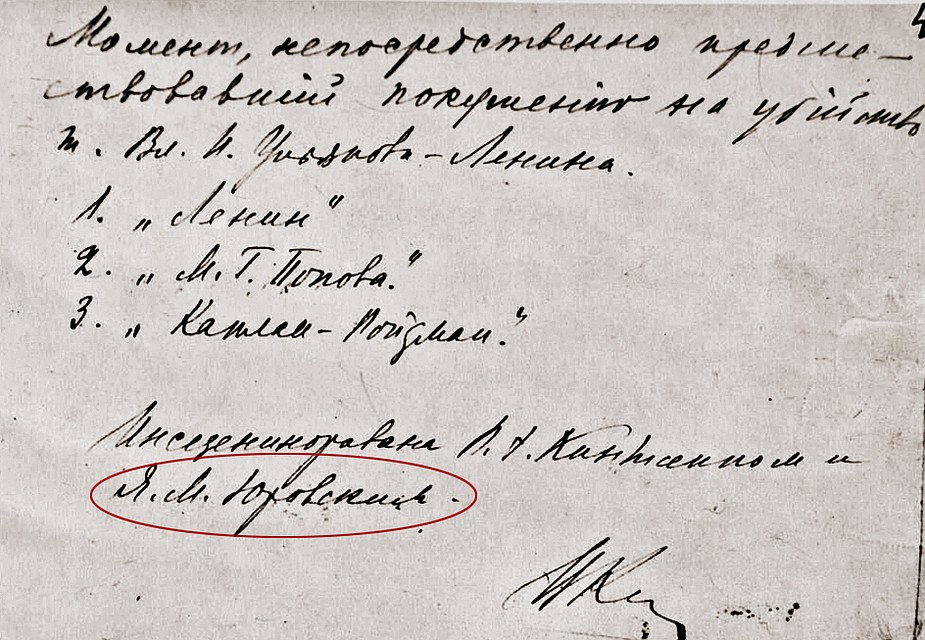 Момент, непосредственно предше-
ствовавший покушению на убийство
т. Вл. И. Ульянова-Ленина.
1. „Ленин"
2. „М. Г. Попова."
3. „Каплан-Ройдман."
Инсценирована В. Кингисеппом и
Я. М. Юровским.